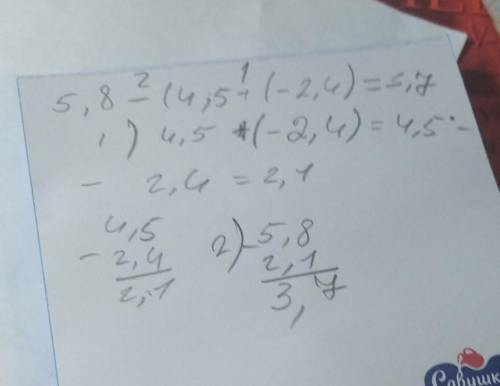 5,8 - (4,5 + (-2,4) = 3,7
1) 4,5 + (-2,4) = 4,5 -
- 2,4 = 2,1
4,5
- 2,4
2,1
2) - 5,8
2,1
3,7
Савушк